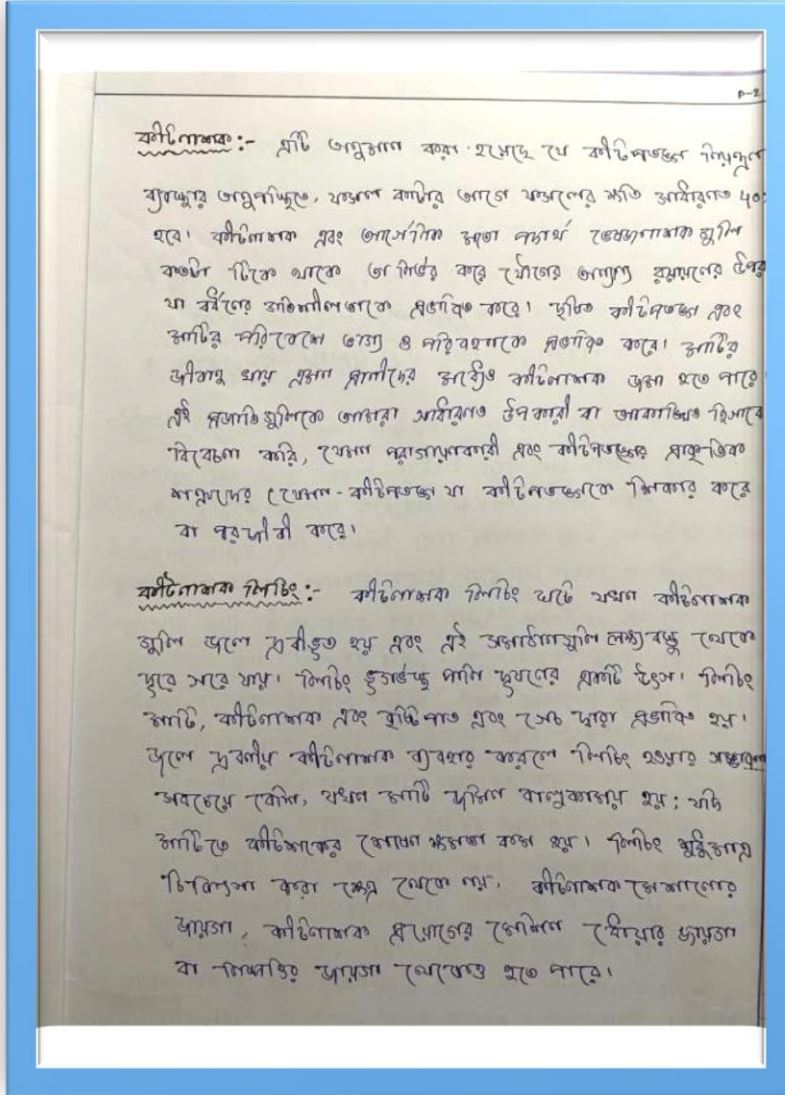 P-2
কীটনাশক:- এটি অনুমান করা হয়েছে যে কীটপতঙ্গ নিয়ন্ত্রণ
ব্যবস্থার অনুপস্থিতে, ফসল কাটার আগে ফসলের ক্ষতি সাধারণত ৪০%
হবে। কীটনাশক এবং আর্সেনিক মতো পদার্থ ভেষজনাশক গুলি
কতটা টিকে থাকে তা নির্ভর করে যৌগের অন্যান্য রসায়নের উপর
যা বর্ষণের গতিশীলতাকে প্রভাবিত করে। দূষিত কীটপতঙ্গ এবং
মাটির পরিবেশে ভাগ্য ও পরিবহনকে প্রভাবিত করে। মাটির
জীবাণু খায় এমন প্রাণীদের মধ্যেও কীটনাশক জমা হতে পারে
এই প্রজাতিগুলিকে আমরা সাধারণত উপকারী বা আকাঙ্ক্ষিত হিসাবে
বিবেচনা করি, যেমন পরাগায়নকারী এবং কীটপতঙ্গের প্রাকৃতিক
শত্রুদের (যেমন- কীটপতঙ্গ যা কীটপতঙ্গকে শিকার করে
বা পরজীবী করে।
কীটনাশক লিচিং:- কীটনাশক লিচিং ঘটে যখন কীটনাশক
গুলি জলে দ্রবীভূত হয় এবং এই সমাধানগুলি লক্ষ্যবস্তু থেকে
দূরে সরে যায়। লিচিং ভূগর্ভস্থ পানি দূষণের একটি উৎস। লিচিং
মাটি, কীটনাশক এবং বৃষ্টিপাত এবং সেচ দ্বারা প্রভাবিত হয়।
জলে দ্রবণীয় কীটনাশক ব্যবহার করলে লিচিং হওয়ার সম্ভাবনা
সবচেয়ে বেশি, যখন মাটি জমিন বালুকাময় হয়; যদি
মাটিতে কীটনাশকের শোষণ ক্ষমতা কম হয়। লিচিং শুধুমাত্র
চিকিৎসা করা ক্ষেত্র থেকে নয়, কীটনাশক মেশানোর
জায়গা, কীটনাশক প্রয়োগের মেশিন ধোয়ার জায়গা
বা নিষ্পত্তির জায়গা থেকেও হতে পারে।